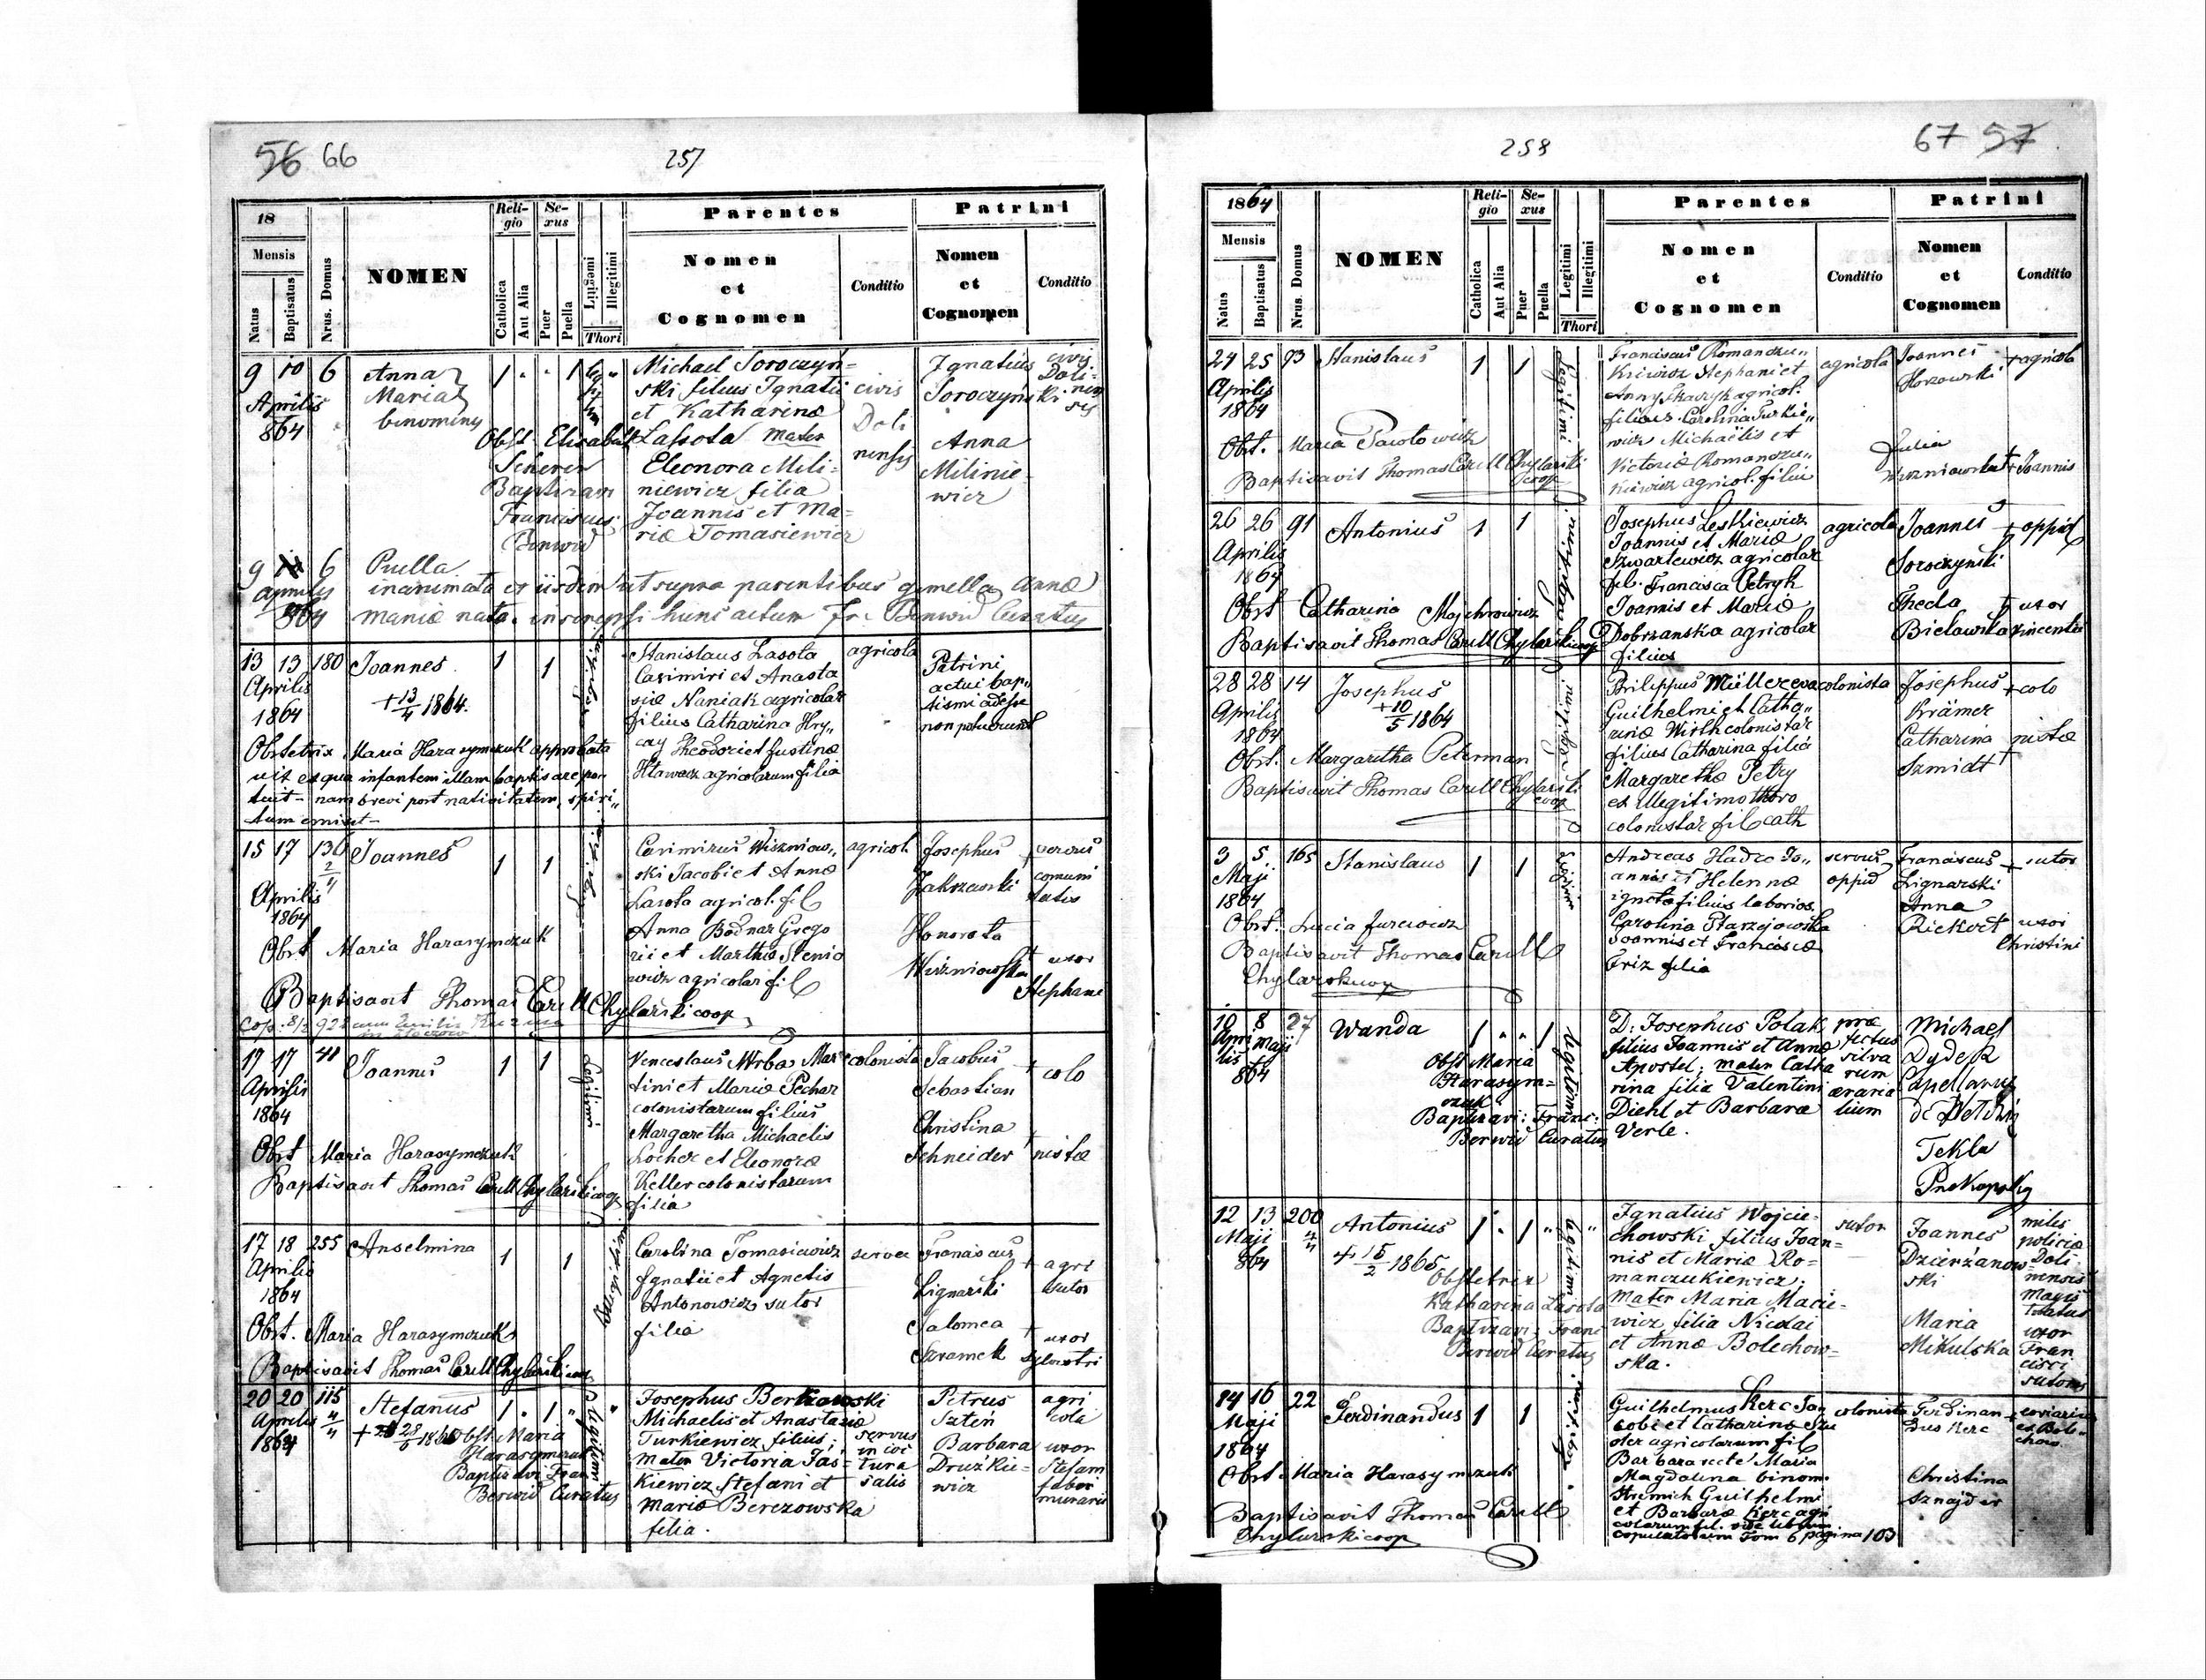 56 66
257
18
Mensis
Natus
Baptisatus
Nrus. Domus
NOMEN
Reli-
gio
Catholica
Aut Alia
Se-
xus
Puer
Puella
Legitimi
Illegitimi
Thori
Parentes
Nomen
et
Cognomen
Conditio
Patrini
Nomen
et
Cognomen
Conditio
9 10 6
Aprilis
864
Anna
Maria
binominy
1 " " 1
Obst. Elisabeth
Scherer
Baptizavi
Franciscus
Berwid
Michael Soroczyń-
ski filius Ignatii
et Katharinæ
Lassota Mater
Eleonora Mili-
niewicz filia
Joannis et Ma-
riæ Tomasiewicz
civis
Doli
nensis
Ignatius
Soroczyński
Anna
Milinie-
wicz
civis
Doli-
nen
sis
9 6
Aprilis
864
Puella
inanimata ex iisdem ut supra parentibus gemella Annæ
Mariæ nata. inscripsi hunc actum Fr. Berwid Curatus
13 13 180
Aprilis
1864
Joannes
+ 13/4 1864.
1 1
Obstetrix Maria Harasymczuk approbata
nam brevi post nativitatem spiri"
tum emisit-
Stanislaus Lasota
Casimiri et Anasta
siæ Naniak agricolar
filius Catharina Hry"
cay Theodori et Justinæ
agricolarum filia
agricola
Patrini
actui bap"
tismi adesse
non potuerunt
15 17 136
2/4
Aprilis
1864
Joannes
1 1
Obst Maria Harasymczuk
Baptisavit Thomas Carll Chylarski coop
Casimirus Wiszniow"
ski Jacobi et Annæ
Lasota agricol. fil
Anna Bodnar Grego
rii et Marthæ
agricolar fil
agricol.
Josephus
Zakrzewski
Honorata
Wiszniowska
+ uxor
Stephani
17 17 41
Aprilis
1864
Joannes
1 1
Obst Maria Harasymczuk
Baptisavit Thomas Carll Chylarski coop
Venceslaus Wrba Mar
tini et Mariæ Pechar
colonistarum filius
Margaretha Michaelis
Locher et Eleonoræ
Keller colonistarum
filia
colonista
Jacobus
Sebastian
Christina
Schneider
+ colo
nistæ
17 18 255
Aprilis
1864
Anselmina
1 1
Obst. Maria Harasymczuk
Baptisavit Thomas Carll Chylarski coop
Carolina Tomasiewicz
Ignatii et Agnetis
Antonowicz sutor
filia
serva
Franciscus
Lignarski
Salomea
Saramek
+ agri
sutor
+ uxor
Sylvestri
20 20 115
4/4
Aprilis
1864
Stefanus
1 " 1 "
Obst. Maria
Harasymczuk
Baptisavi: Fran:
Berwid Curatus
Josephus Berezowski
Michaelis et Anastasiæ
Turkiewicz filius;
mater Victoria Jaś-
kiewicz Stefani et
Mariæ Berezowska
filia.
servus
in coc
tura
salis
Petrus
Szteń
Barbara
Drużkie-
wicz
agri
cola
uxor
Stefani
fabri
murarii
258
67 57
1864
Mensis
Natus
Baptisatus
Nrus. Domus
NOMEN
Reli-
gio
Catholica
Aut Alia
Se-
xus
Puer
Puella
Legitimi
Illegitimi
Thori
Parentes
Nomen
et
Cognomen
Conditio
Patrini
Nomen
et
Cognomen
Conditio
24 25 93
Aprilis
1864
Stanislaus
1 1
Legitimi
Obst. Maria Pawłowicz
Baptisavit Thomas Carll Chylarski
coop
Franciscus Romanczu"
kiewicz Stephani et
agricol.
filius. Carolina Turkie"
wicz Michaëlis et
Victoriæ Romanczu"
kiewicz agricol. filia
agricola
Joannes
Horzowski
Julia
Wiszniowska
+ agricola
+ Joannis
26 26 91
Aprilis
1864
Antonius
1 1
Obst Catharina Majchrowicz
Baptisavit Thomas Carll Chylarski coop
Josephus Leskiewicz
Joannis et Mariæ
Szwartewicz agricolar
fil. Francisca Petryk
Joannis et Mariæ
Dobrzanska agricolar
filia
agricola
Joannes
Soroczynski
Thecla
Bielawska
+ oppid
+ uxor
Vincentii
28 28 14
Aprilis
1864
Josephus
+ 10/5 1864
Obst. Margaritha Peterman
Baptisavit Thomas Carll Chylarski
coop
Philippus Müller
Guilhelmi et Catha"
rinæ Wirth colonistar
filius Catharina filia
Margarethæ Petry
ex illegitimo thoro
colonistar fil cath
colonista
Josephus
Brämer
Catharina
Szmidt
+ colo
nistæ
+
3 5. 165
Maji
1864
Stanislaus
1 1
Obst. Lucia Jurciowicz
Baptisavit Thomas Carll
Chylarski coop
Andreas Hadro Jo"
annis et Helennæ
ignota filius laborios.
Carolina Starzejowska
Joannis et Franciscæ
Briz filia
servus
oppid
Franciscus
Lignarski
Anna
Riekert
+ sutor
uxor
Christini
10 8 27
Apri Maji
lis
864
Wanda
1 " " 1
Obst Maria
Harasym=
czuk
Baptizavi: Franc:
Berwid Curatus
D: Josephus Polak
filius Joannis et Annæ
Apostel; mater Catha
rina filia Valentini
Diehl et Barbaræ
Verle.
præ
fectus
silva
rum
æraria
lium
Michael
Dydek
Capellanus
Tekla
Prokopsky
12 13 200
Maji
864
Antonius
+ 15/2 1865
1 " 1 "
Obstetrix
Katharina Lasota
Baptizavi: Franc
Berwid Curatus
Ignatius Wojcie-
chowski filius Joan=
nis et Mariæ Ro-
manczukiewicz;
mater Maria Macie-
wicz filia Nicolai
et Annæ Bolechow-
ska.
sutor
Joannes
Dzierżanow-
ski
Maria
Mikulska
miles
policiæ
Doli
nensis
magis
tratus
uxor
Fran
cisci
sutoris
14 16 22
Maji
1864
Ferdinandus
1 1
Obst. Maria Harasymczuk
Baptisavit Thomas Carll
Chylarski coop
Guilhelmus Kerc Ja
cobi et Catharinæ
agricolarum fil
Barbara recte Maria
Magdalena binom.
Hremich Guilhelmi
et Barbaræ Kerc agri
colarum fil. vide librum
copulatorum Tom 6 pagina 103
colonista
Ferdinan
dus Kerc
Christina
Sznajder
+ coriarius
ex Bole-
chow.